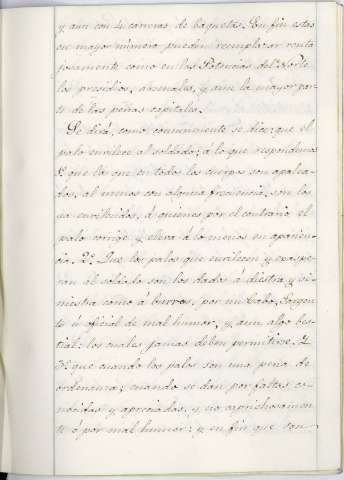 y aun con 4 carreras de baquetas. En fin estas
en mayor número pueden reemplazar venta
josamente como en las Potencias del Norte
los presidios, arsenales, y aun la mayor par-
te de las penas capitales.
Se dirá, como comunmente se dice, que el
palo envilece al soldado; á lo que respondemos
1º que los que en todos los cuerpos son apalea-
dos, al menos con alguna frecuencia, son los
ya envilecidos, á quienes por el contrario el
palo corrige y eleva á lo menos en aparien-
cia. 2º Que los palos que envilecen y exaspe-
ran al soldado son los dados á diestra y si-
niestra como á burros, por un Cabo, Sargen-
to ú oficial de mal humor, y aun algo bes-
tial; los cuales jamas deben permitirse. Y
3º que cuando los palos son una pena de
ordenanza; cuando se dan por faltas co-
nocidas y apreciadas, y no caprichosamen
te ó por mal humor; y en fin que son-